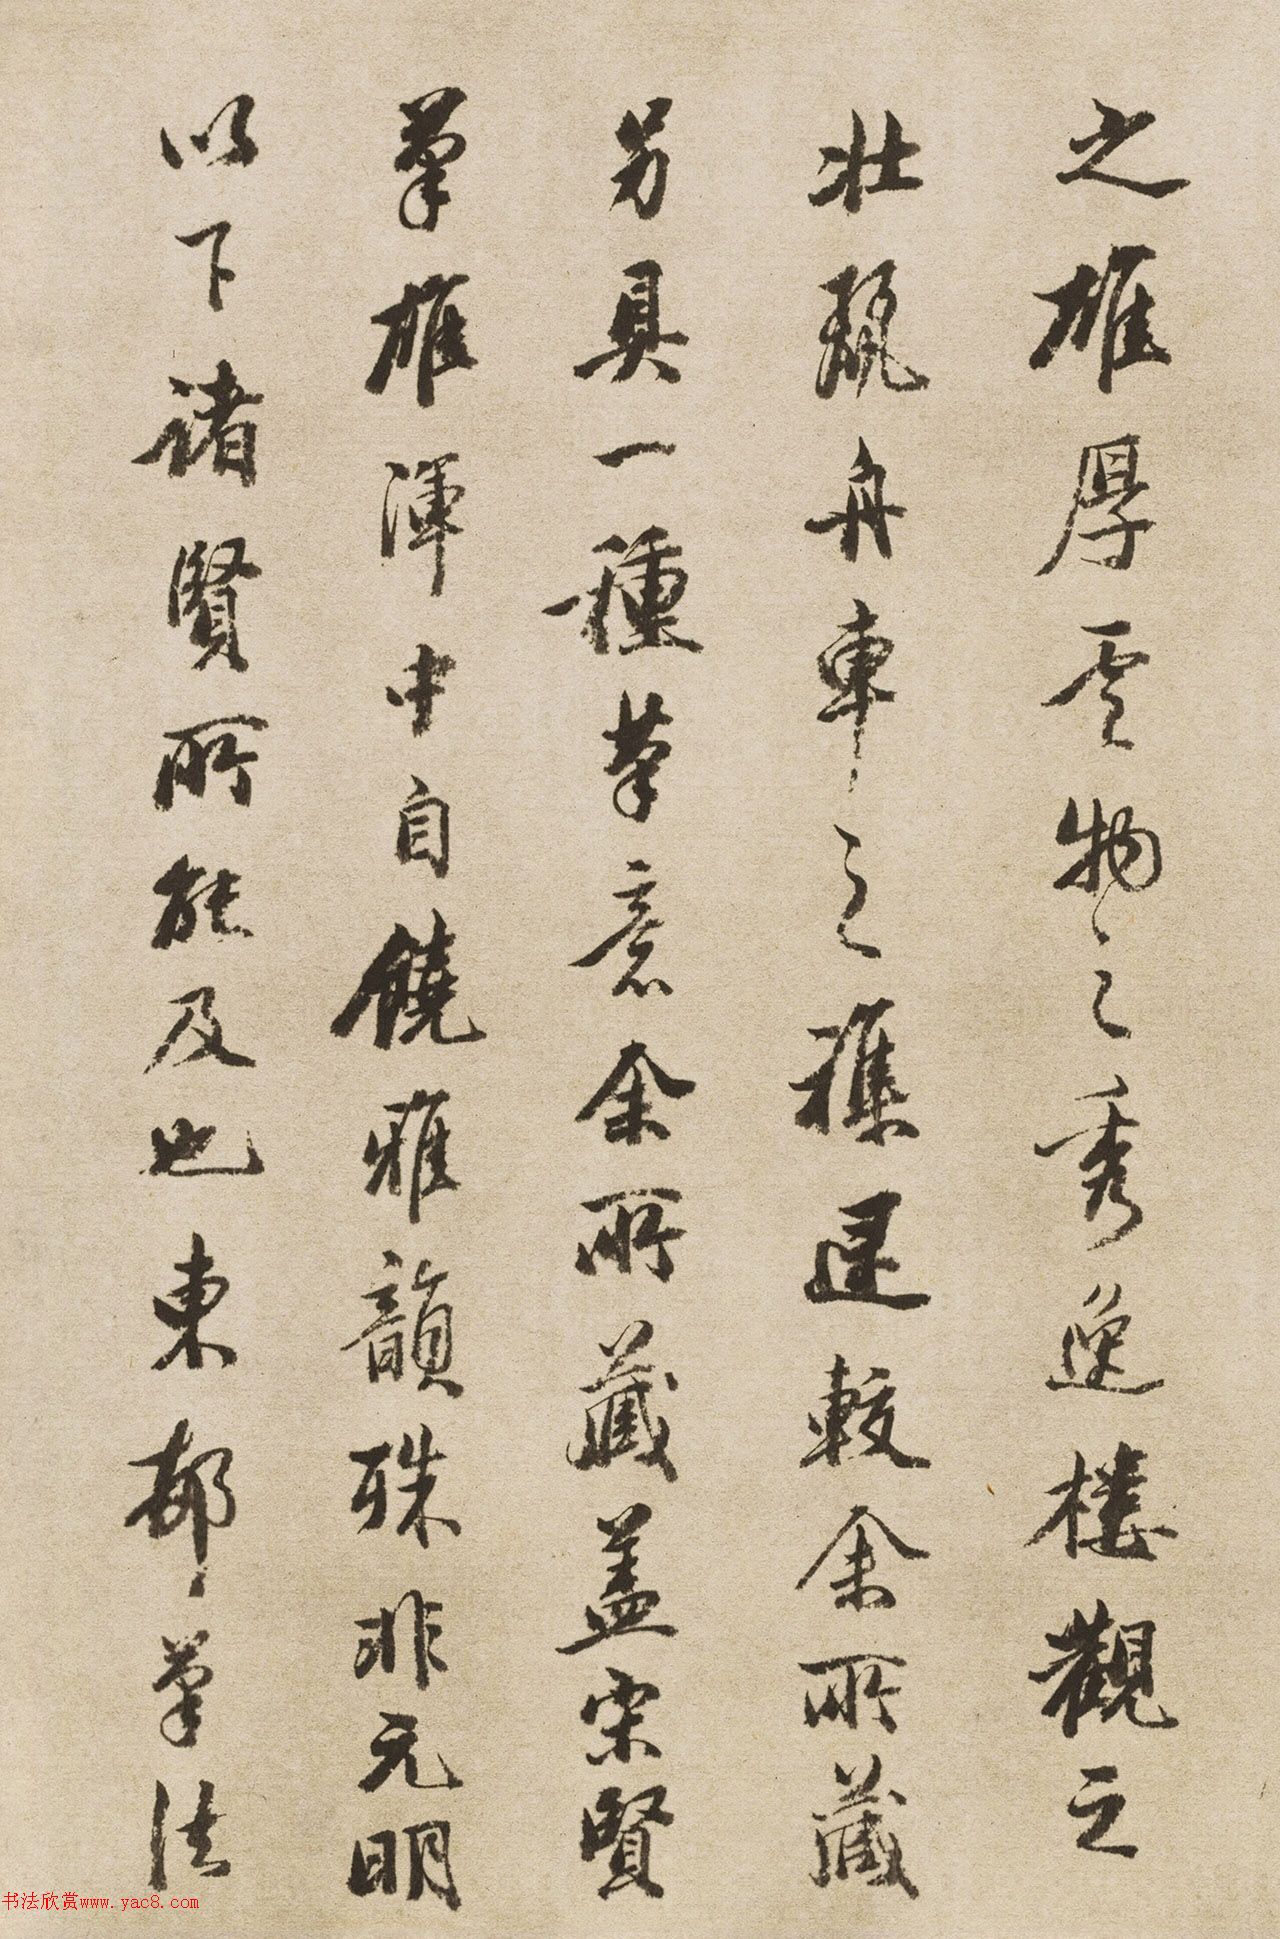 之雄厚雲物之秀逸樓觀之
壯麗舟車之穠遲較余所藏
另具一種筆意余所藏蓋宋賢
筆雄渾中自饒雅韻殊非元明
以下諸賢所能及也東邨筆法
书法欣赏www.yac8.com